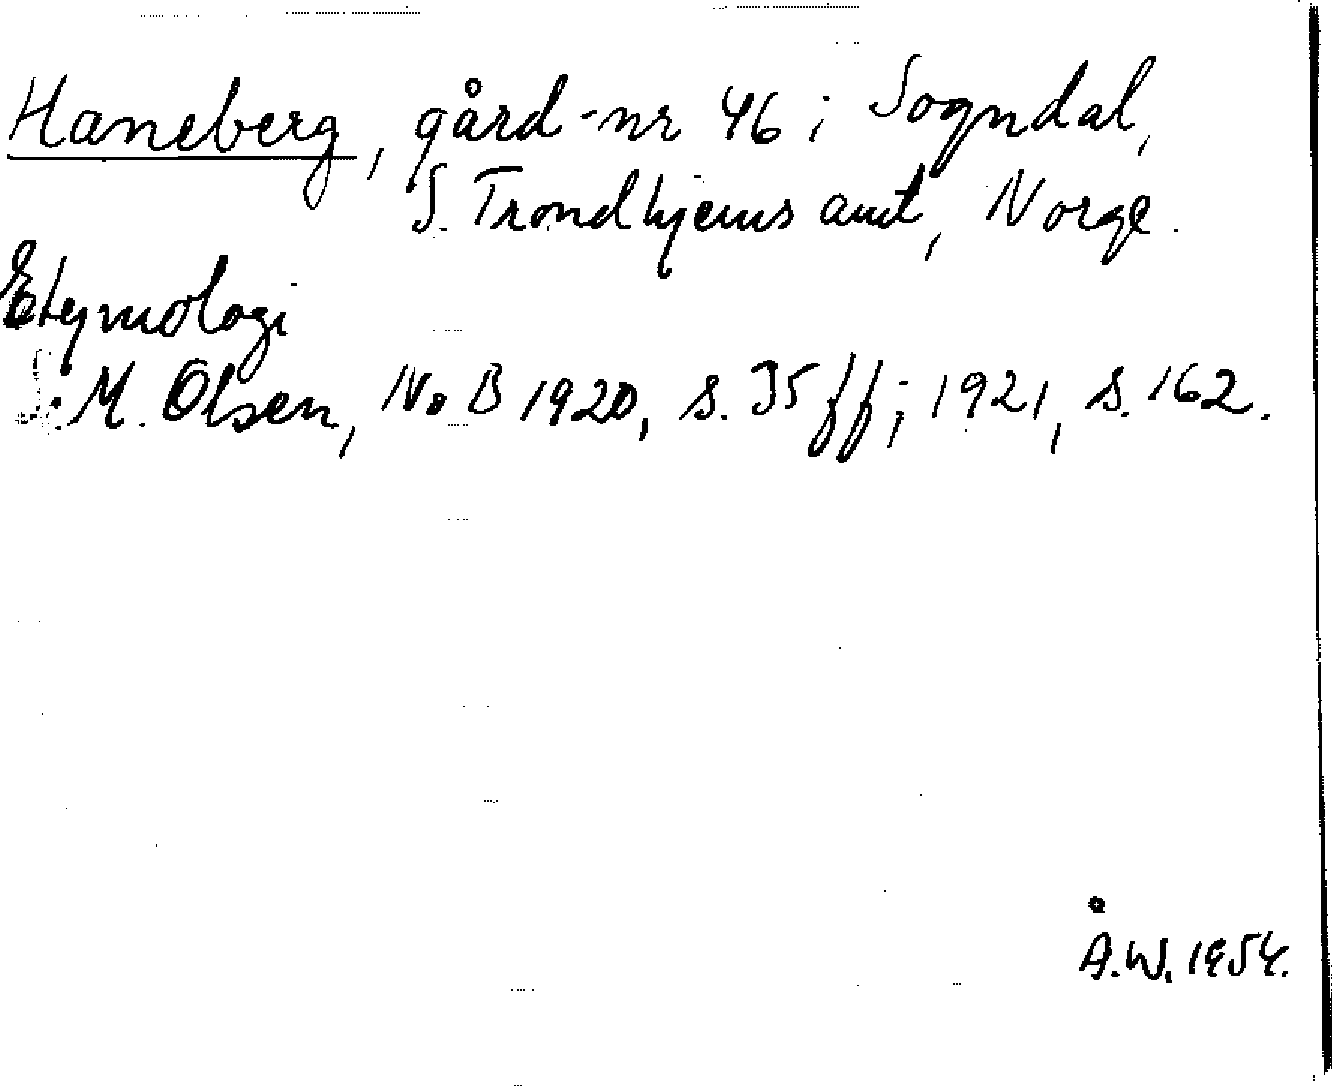 Haneberg, gård-nr 46 i Sogndal,
S. Trondhjems amt, Norge.
Etymologi
M. Olsen, NoB 1920, s. 35 ff; 1921, s. 162.
Å.W. 1954.